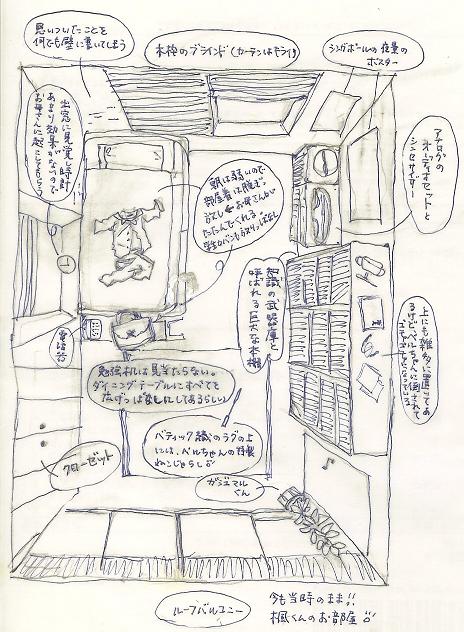 思いついたことを
何でも壁に書いてしまう
木枠のブラインド(カーテンはキライ)
シンガポールの夜景の
ポスター
出窓に目覚し時計
あまり効果がないので
お母さんに起こしてもらう
アナログの
オーディオセットと
シンセサイザー
朝は弱いので
部屋着は脱ぎっ
放し←お母さんが
たたんでくれる。
知識の武器庫と
呼ばれる巨大な本棚
上にも雑多に置いてあ
るけどベルちゃんに倒されて
電話台
勉強机は見当たらない。
ダイニングテーブルにすべてを
広げっぱなしにしてあるらしい
バティック織のラグの上
には、ベルちゃんの特製
ねこじゃらしが
ガジュマル
くん
クローゼット
ルーフバルコニー
今も当時のまま!!
楓くんのお部屋